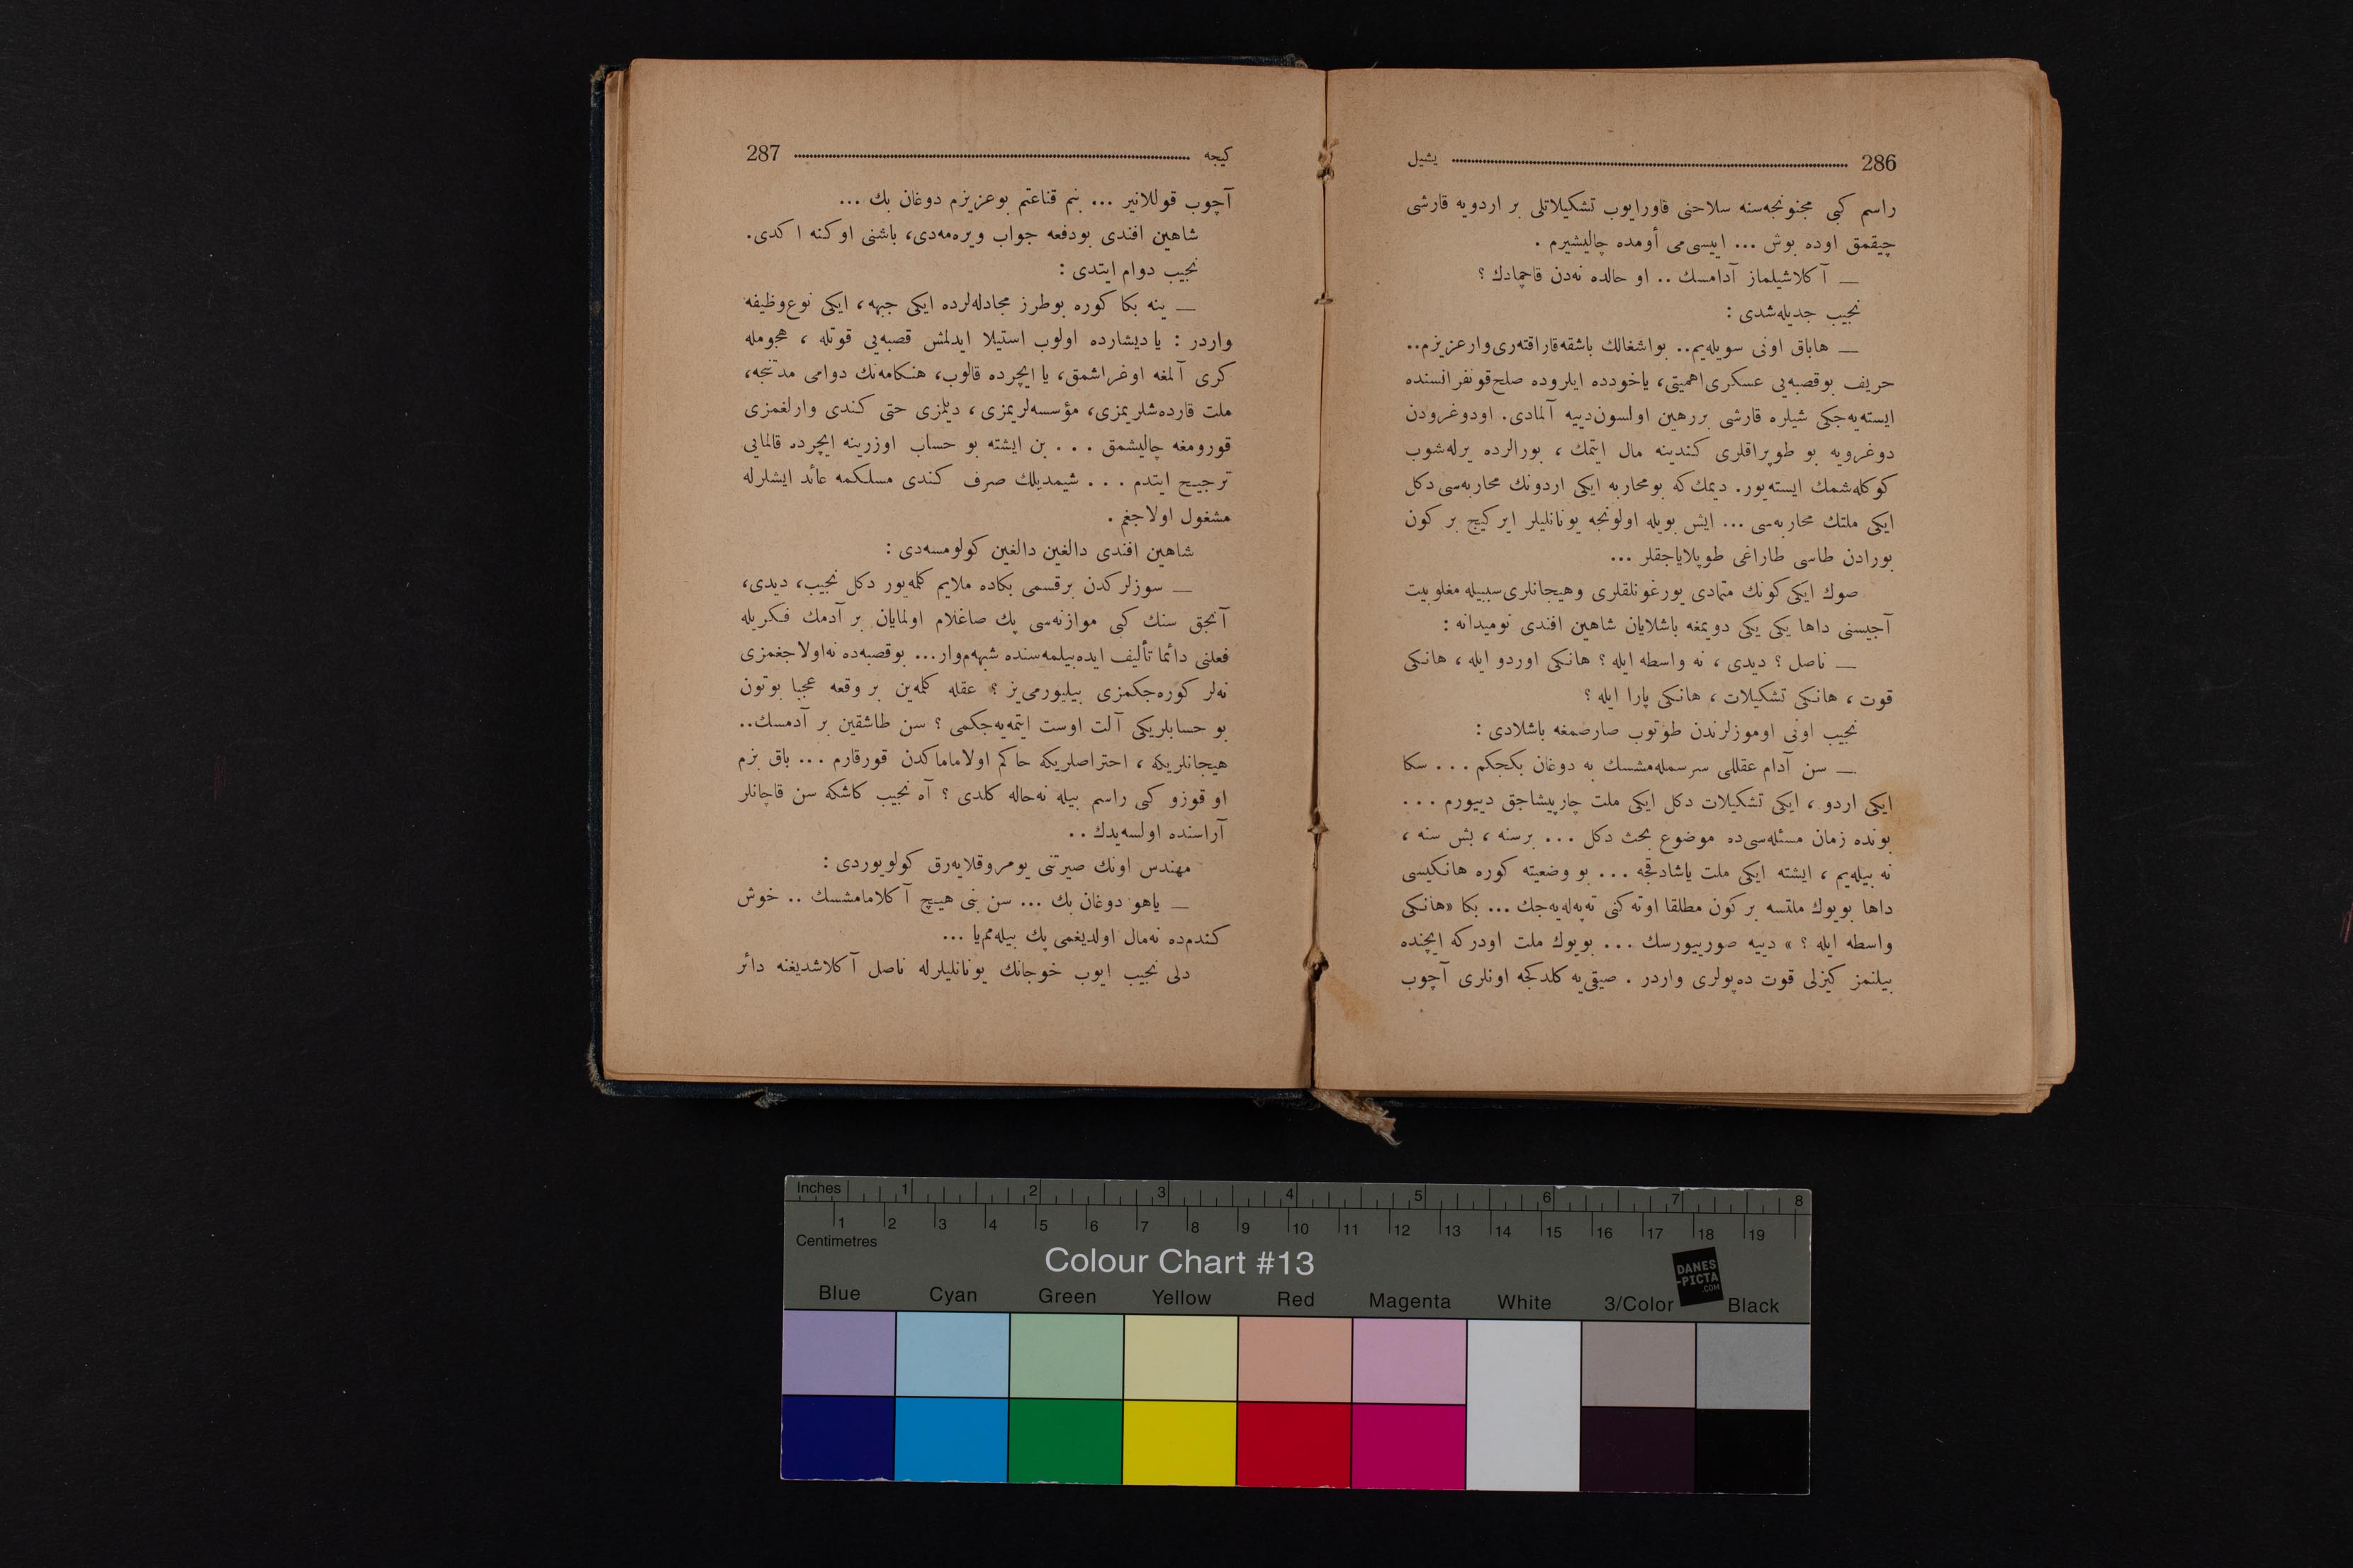 286 يشيل
راسم كبی مجنونجه‌سنه سلاحنی قاورايوب تشكيلاتلی بر اردويه قارشی
چيقمق اوده بوش ... اييسی‌می أومده چاليشيرم .
— آكلاشيلماز آدامسك .. او حالده نه‌دن قاچمادك ؟
نجيب جديله‌شدی :
— هاباق اونی سويله‌يم.. بواشغالك باشقه‌قاراقته‌ری‌وارعزيزم..
حريف بوقصبه‌يی عسكری‌اهميتی، ياخودده ايلروده صلح‌قونفرانسنده
ايسته‌يه‌جكی شيلره قارشی بررهين اولسون‌دييه آلمادی. اودوغرودن
دوغرويه بو طوپراقلری كندينه مال ايتمك ، بورالرده يرله‌شوب
كوكله‌شمك ايسته‌يور. ديمك‌كه بومحاربه ايكی اردونك محاربه‌سی دكل
ايكی ملتك محاربه‌سی ... ايش بويله اولونجه يونانليلر اير كيچ بر كون
بورادن طاسی طاراغی طوپلاياجقلر ...
صوك ايكی كونك متمادی يورغونلقلری وهيجانلری سببيله مغلوبيت
آجيسنی داها يكی يكی دويمغه باشلايان شاهين افندی نوميدانه :
— ناصل ؟ ديدی ، نه واسطه ايله ؟ هانكی اوردو ايله ، هانكی
قوت ، هانكی تشكيلات ، هانكی پارا ايله ؟
نجيب اونی اوموزلرندن طوتوب صارصمغه باشلادی :
— سن آدام عقللی سرسمله‌مشسك به دوغان بكجكم ... سكا
ايكی اردو ، ايكی تشكيلات دكل ايكی ملت چارپيشاجق دييورم ...
بونده زمان مسئله‌سی‌ده موضوع بحث دكل ... برسنه ، بش سنه ،
نه بيله‌يم ، ايشته ايكی ملت ياشادقجه ... بو وضعيته كوره هانكيسی
داها بويوك ملتسه بر كون مطلقا اوته‌كنی ته‌په‌له‌يه‌جك ... بكا «هانكی
واسطه ايله ؟ » دييه صورييورسك ... بويوك ملت اودركه ايچنده
بيلنمز كيزلی قوت ده‌پولری واردر . صيقی‌يه كلدكجه اونلری آچوب
كيجه 287
آچوب قوللانير ... بنم قناعتم بوعزيزم دوغان بك ...
شاهين افندی بودفعه جواب ويره‌مه‌دی، باشنی اوكنه اكدی.
نجيب دوام ايتدی :
— ينه بكا كوره بوطرز مجادله‌لرده ايكی جبهه ، ايكی نوع‌وظيفه
واردر : ياديشارده اولوب استيلا ايدلمش قصبه‌يی قوتله ، هجومله
كری آلمغه اوغراشمق، يا ايچرده قالوب، هنكامه‌نك دوامی مدتنجه،
ملت قارده‌شلريمزی، مؤسسه‌لريمزی ، ديلمزی حتی كندی وارلغمزی
قورومغه چاليشمق . . . بن ايشته بو حساب اوزرينه ايچرده قالمايی
ترجيح ايتدم . . . شيمديلك صرف كندی مسلكمه عائد ايشلرله
مشغول اولاجغم .
شاهين افندی دالغين دالغين كولومسه‌دی :
— سوزلركدن برقسمی بكاده ملايم كلمه‌يور دكل نجيب، ديدی،
آنجق سنك كبی موازنه‌سی پك صاغلام اولمايان بر آدمك فكريله
فعلنی دائما تأليف ايده‌بيلمه‌سنده شبهه‌م‌وار... بوقصبه‌ده نه‌اولاجغمزی
نه‌لر كوره‌جكمزی بيليورمی‌يز ؟ عقله كلمه‌ين بر وقعه عجبا بوتون
بو حسابلريكی آلت اوست ايتمه‌يه‌جكمی ؟ سن طاشقين بر آدمسك..
هيجانلريكه ، احتراصلريكه حاكم اولاماماكدن قورقارم ... باق بزم
او قوزو كبی راسم بيله نه‌حاله كلدی ؟ آه نجيب كاشكه سن قاچانلر
آراسنده اولسه‌يدك ..
مهندس اونك صيرتنی يومروقلايه‌رق كولويوردی :
— ياهو دوغان بك ... سن بنی هيچ آكلامامشسك .. خوش
كندم‌ده نه‌مال اولديغمی پك بيله‌مم‌يا ...
دلی نجيب ايوب خوجانك يونانليلرله ناصل آكلاشديغنه دائر
Inches 1 2 3 4 5 6 7 8
1 2 3 4 5 6 7 8 9 10 11 12 13 14 15 16 17 18 19
Centimetres
Colour Chart #13
DANES
-PICTA
.COM
Blue Cyan Green Yellow Red Magenta White 3/Color Black